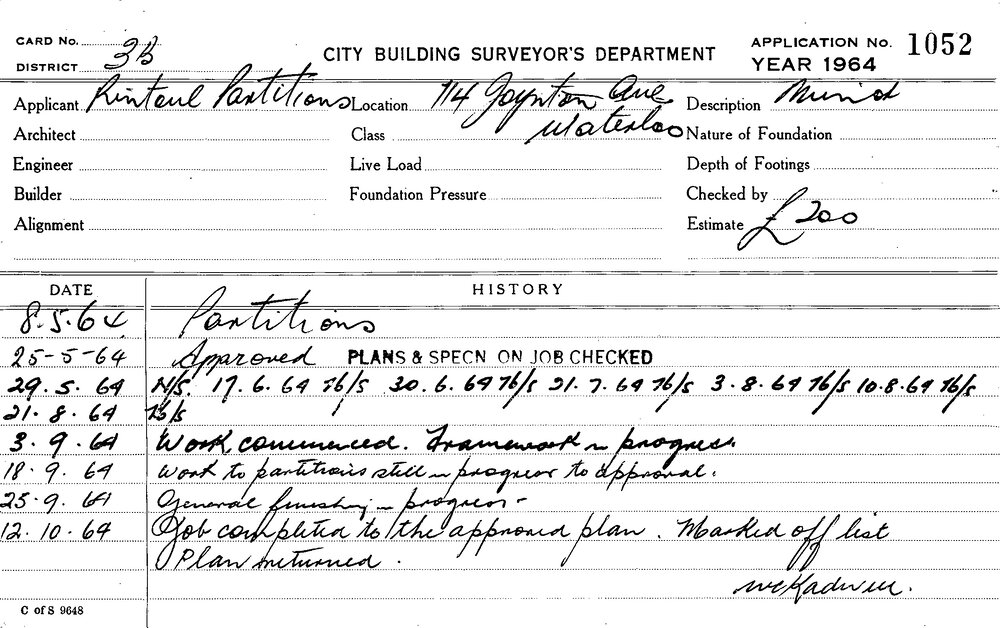 CARD No.
DISTRICT 3B
CITY BUILDING SURVEYOR'S DEPARTMENT
APPLICATION No. 1052
YEAR 1964
Applicant Rintoul Partitions Location 114 Joynton Ave Waterloo Description
Architect Class Nature of Foundation
Engineer Live Load Depth of Footings
Builder Foundation Pressure Checked by
Alignment Estimate £200
DATE HISTORY
8.5.64 Partitions
25-5-64 Approved PLANS & SPECN ON JOB CHECKED
29.5.64 N/S. 17.6.64 N/S 30.6.64 N/S 21.7.64 N/S 3.8.64 N/S 10.8.64 N/S
21.8.64 N/S
3.9.64 Work commenced. Framework in progress.
18.9.64 Work to partitions still in progress to approval.
25.9.64 General finishing in progress -
12.10.64 Job completed to the approved plan. Marked off list
Plan returned.
C of S 9648